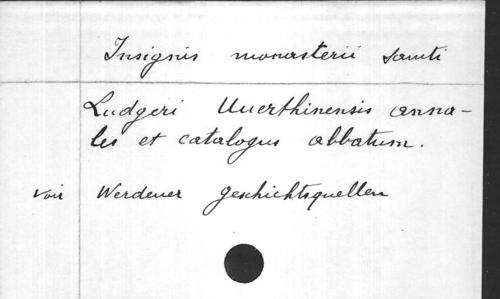 Insignis monasterii sancti
Ludgeri Uuerthinensis anna-
les et catalogus abbatum.
voir Werdener Geschichtsquellen